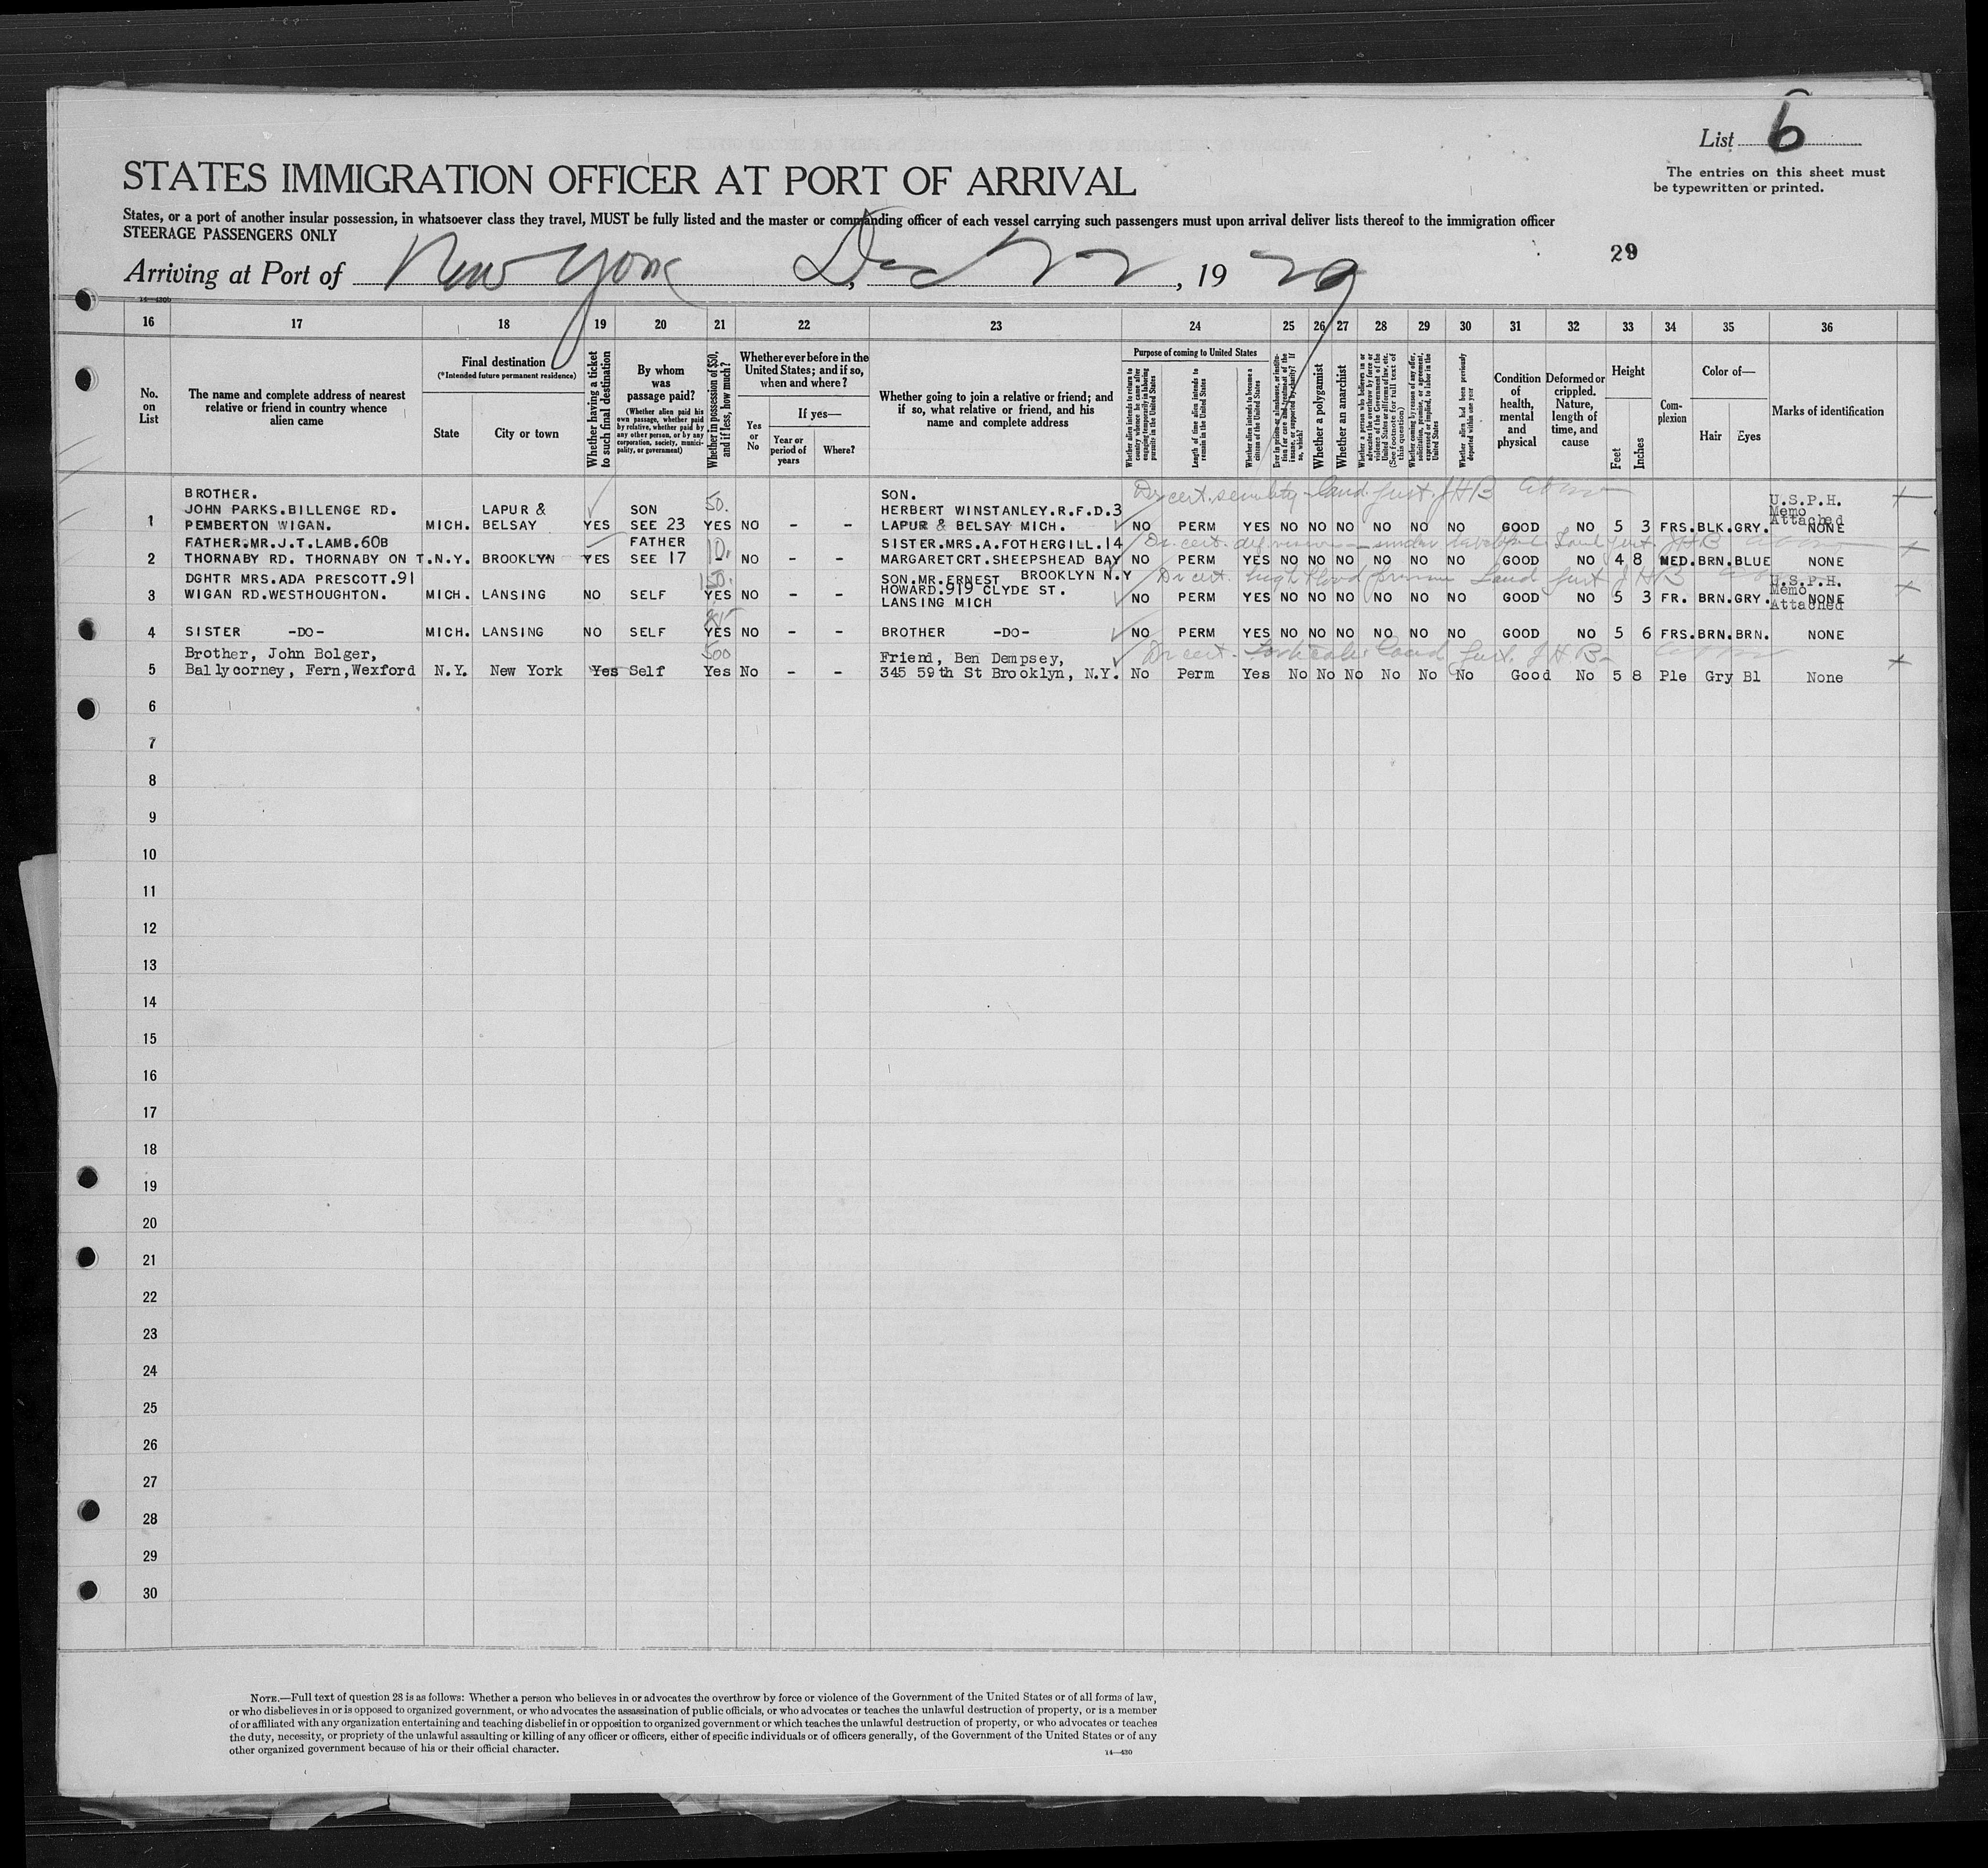 List 6
The entries on this sheet must
be typewritten or printed.
STATES IMMIGRATION OFFICER AT PORT OF ARRIVAL
States, or a port of another insular possession, in whatsoever class they travel, MUST be fully listed and the master or commanding officer of each vessel carrying such passengers must upon arrival deliver lists thereof to the immigration officer
STEERAGE PASSENGERS ONLY
29
Arriving at Port of New York, Dec 22, 1929
14—430b
16 17 18 19 20 21 22 23 24 25 26 27 28 29 30 31 32 33 34 35 36
No. on List
The name and complete address of nearest relative or friend in country whence alien came
Final destination
(*Intended future permanent residence)
State
City or town
Whether having a ticket to such final destination
By whom was passage paid?
(Whether alien paid his own passage, whether paid by relative, whether paid by any other person, or by any corporation, society, municipality, or government)
Whether in possession of $50, and if less, how much?
Whether ever before in the United States; and if so, when and where?
Yes or No
If yes—
Year or period of years
Where?
Whether going to join a relative or friend; and if so, what relative or friend, and his name and complete address
Purpose of coming to United States
Whether alien intends to return to country whence he came after engaging temporarily in laboring pursuits in the United States
Length of time alien intends to remain in the United States
Whether alien intends to become a citizen of the United States
Ever in prison or almshouse, or institution for care and treatment of the insane, or supported by charity? If so, which?
Whether a polygamist
Whether an anarchist
Whether a person who believes in or advocates the overthrow by force or violence of the Government of the United States or all forms of law, etc. (See footnote for full text of this question)
Whether coming by reason of any offer, solicitation, promise, or agreement, expressed or implied, to labor in the United States
Whether alien had been previously deported within one year
Condition of health, mental and physical
Deformed or crippled. Nature, length of time, and cause
Height
Feet
Inches
Complexion
Color of—
Hair
Eyes
Marks of identification
BROTHER.
JOHN PARKS.BILLENGE RD.
1 PEMBERTON WIGAN. MICH. LAPUR & BELSAY YES SON SEE 23 50. YES NO - - SON. HERBERT WINSTANLEY.R.F.D.3 LAPUR & BELSAY MICH. NO PERM YES NO NO NO NO NO NO GOOD NO 5 3 FRS. BLK. GRY. NONE
Dr cert. senility Land just. JHB
U.S.P.H. Memo Attached
FATHER.MR.J.T.LAMB.60B
2 THORNABY RD. THORNABY ON T. N.Y. BROOKLYN YES FATHER SEE 17 10. NO - - SISTER.MRS.A.FOTHERGILL.14 MARGARETCRT.SHEEPSHEAD BAY BROOKLYN N.Y NO PERM YES NO NO NO NO NO NO GOOD NO 4 8 MED. BRN. BLUE NONE
DGHTR MRS.ADA PRESCOTT.91
3 WIGAN RD.WESTHOUGHTON. MICH. LANSING NO SELF 150. YES NO - - SON.MR.ERNEST HOWARD.919 CLYDE ST. LANSING MICH NO PERM YES NO NO NO NO NO NO GOOD NO 5 3 FR. BRN. GRY. NONE
Dr cert. high blood pressure Land just JHB
U.S.P.H. Memo Attached
4 SISTER -DO- MICH. LANSING NO SELF YES NO - - BROTHER -DO- NO PERM YES NO NO NO NO NO NO GOOD NO 5 6 FRS. BRN. BRN. NONE
Brother, John Bolger,
5 Ballycorney, Fern, Wexford N.Y. New York Yes Self 500 Yes No - - Friend, Ben Dempsey, 345 59th St Brooklyn, N.Y. No Perm Yes No No No No No No Good No 5 8 Ple Gry Bl None
6
7
8
9
10
11
12
13
14
15
16
17
18
19
20
21
22
23
24
25
26
27
28
29
30
NOTE.—Full text of question 28 is as follows: Whether a person who believes in or advocates the overthrow by force or violence of the Government of the United States or of all forms of law,
or who disbelieves in or is opposed to organized government, or who advocates the assassination of public officials, or who advocates or teaches the unlawful destruction of property, or is a member
of or affiliated with any organization entertaining and teaching disbelief in or opposition to organized government or which teaches the unlawful destruction of property, or who advocates or teaches
the duty, necessity, or propriety of the unlawful assaulting or killing of any officer or officers, either of specific individuals or of officers generally, of the Government of the United States or of any
other organized government because of his or their official character.
14—430